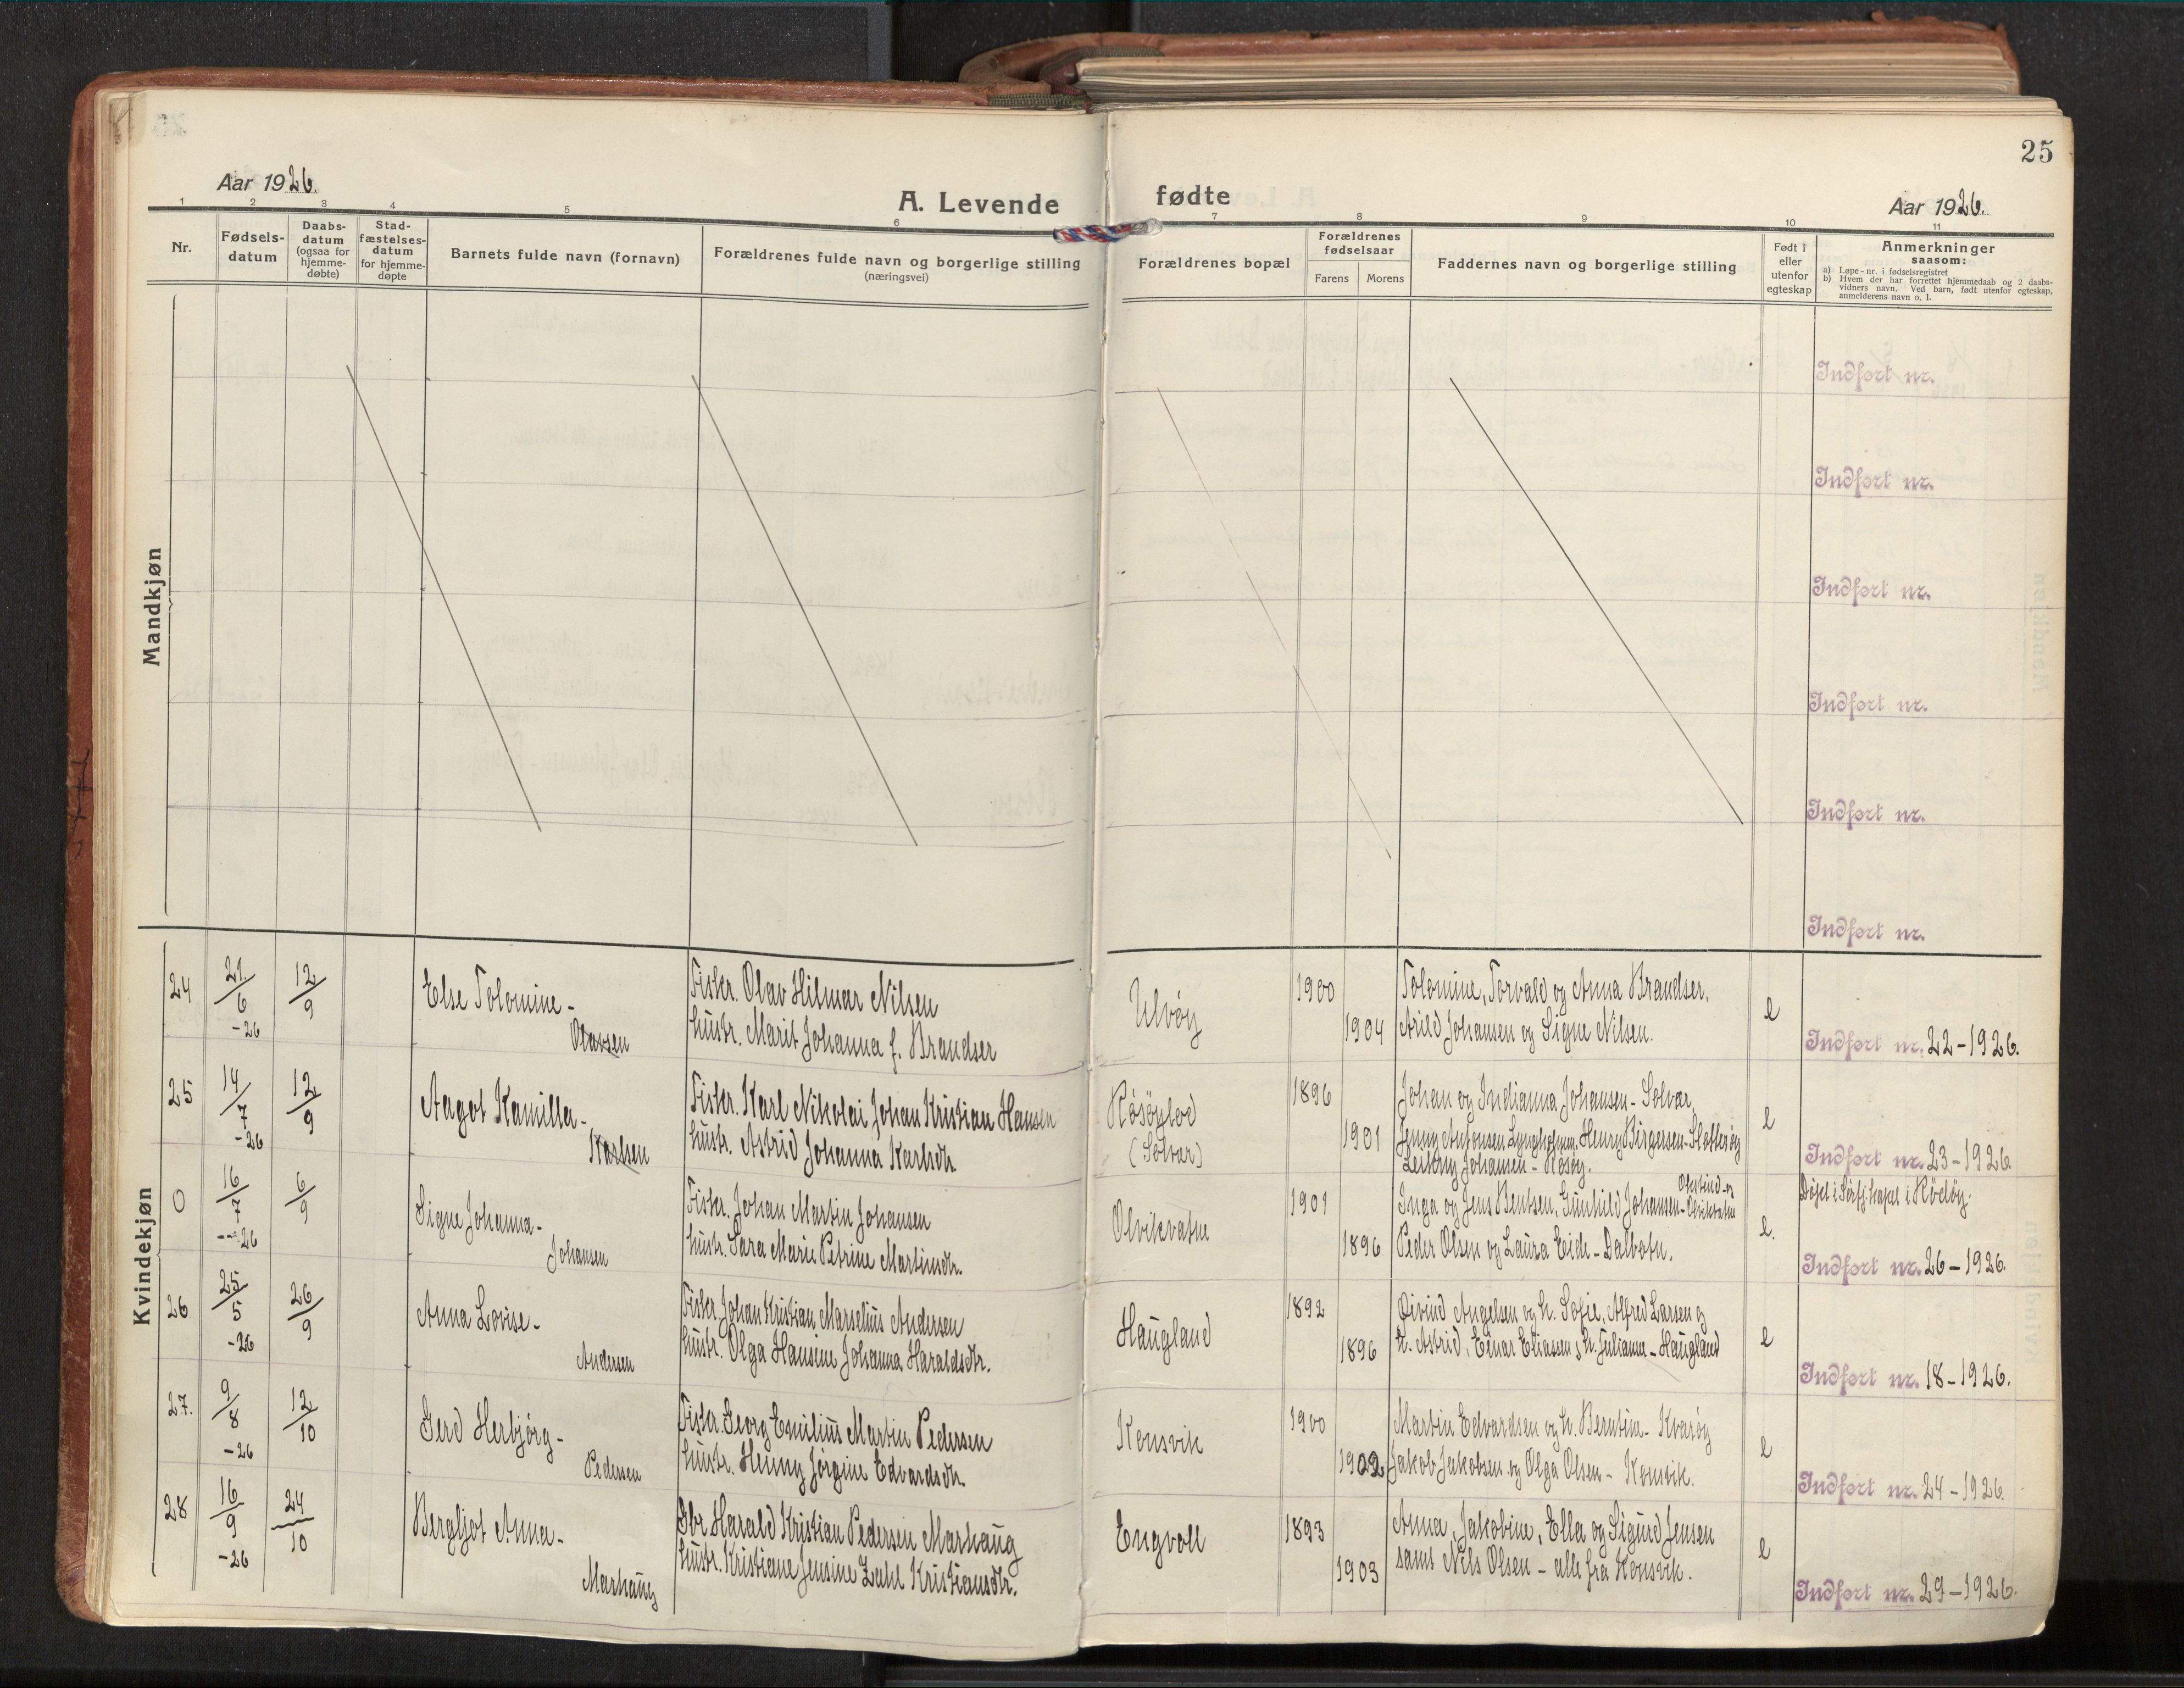 25
Aar 1926.
A. Levende fødte
Aar 1926.
1 2 3 4 5 6 7 8 9 10 11
Nr.
Fødsels-
datum
Daabs-
datum
(ogsaa for
hjemme-
døbte)
Stad-
fæstelses-
datum
for hjemme-
døpte
Barnets fulde navn (fornavn)
Forældrenes fulde navn og borgerlige stilling
(næringsvei)
Forældrenes bopæl
Forældrenes
fødselsaar
Farens Morens
Faddernes navn og borgerlige stilling
Født i
eller
utenfor
egteskap
Anmerkninger
saasom:
a) Løpe-nr. i fødselsregistret
b) Hvem der har forrettet hjemmedaab og 2 daabs-
vidners navn. Ved barn, født utenfor egteskap,
anmelderens navn o. l.
Mandkjøn
Indført nr.
Indført nr.
Indført nr.
Indført nr.
Indført nr.
Indført nr.
Kvindekjøn
24 21/6 -26 12/9 Else Tolomine-
Olavsen
Fisker. Olav Hilmar Nilsen
hustr. Marit Johanna f. Brandser
Ulvøy 1900 1904
Tolomine, Torvald og Anna Brandser,
Arild Johansen og Signe Nilsen.
e
Indført nr. 22-1926.
25 14/7 -26 12/9 Aagot Kamilla-
Karlsen
Fisker. Karl Nikolai Johan Kristian Hansen
hustr. Astrid Johanna Karlsdtr.
Røsøylod
(Solvær)
1896 1901
Johan og Indianna Johansen- Solvær,
Jenny Antonsen Lyngholmen. Henry Birgersen- Sletterøy
Johansen - Røsøy.
e
Indført nr. 23-1926
0 16/7 -26 6/9 Signe Johanna-
Johansen
Fisker. Johan Martin Johansen
hustr. Sara Marie Petrine Martinsdtr.
Olvikvatne 1901 1896
Inga og Jens Bentsen, Gunhild Johansen- Olvikvatne
Peder Olsen og Laura Eide- Dalbotn.
e.
Døpt i Sørfj. kapel i Rödöy.
Indført nr. 26-1926.
26 25/5 -26 26/9 Anna Lovise-
Andersen
Fisker Johan Kristian Marselius Andersen
hustr. Olga Hansine Johanna Haraldsdtr.
Haugland 1892 1896
Øivind Angelsen og h. Sofie, Alfred Larsen og
h. Astrid, Einar Eliassen, h. Julianna- Haugland
e
Indført nr. 18-1926.
27. 9/8 -26 12/10 Gerd Herbjørg-
Pedersen
Fisker Georg Emilius Martin Pedersen
hustr. Henny Jørgine Edvardsdtr.
Konsvik 1900 1902
Martin Edvardsen og h. Berntine- Kvarøy
Jakob Jakobsen og Olga Olsen- Konsvik.
e
Indført nr. 24-1926.
28 16/9 -26 24/10 Bergljot Anna-
Marhaug
Gbr. Harald Kristian Pedersen Marhaug
hustr. Kristiane Jensine Zahl Kristiansdtr.
Engvoll 1893 1903
Anna, Jakobine, Ella og Sigurd Jensen
samt Nils Olsen - alle fra Konsvik.
e
Indført nr. 29-1926.